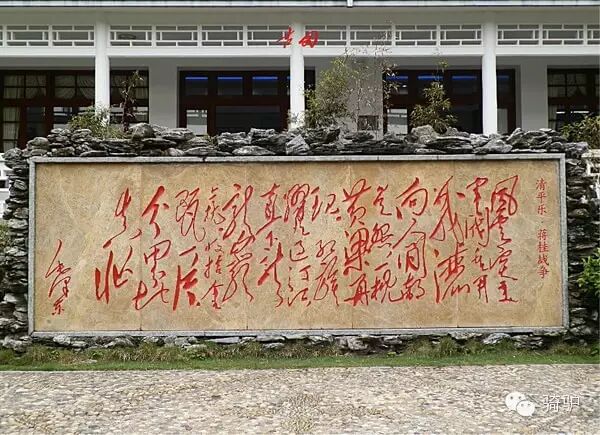 古田
清平乐·蒋桂战争
风云突变
军阀重开
战洒
向人间都
是怨一枕
黄粱再
现红旗
跃过汀江
直下龙
岩上
杭收拾金
瓯一片
分田分地
真忙
毛泽东
骑驴